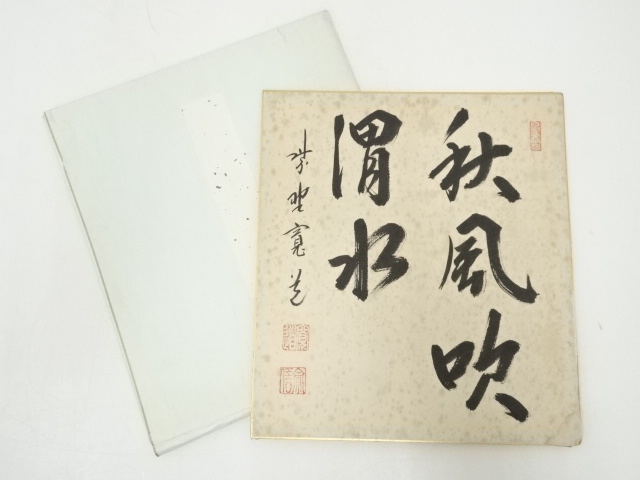 秋風吹
渭水
紫野寛道